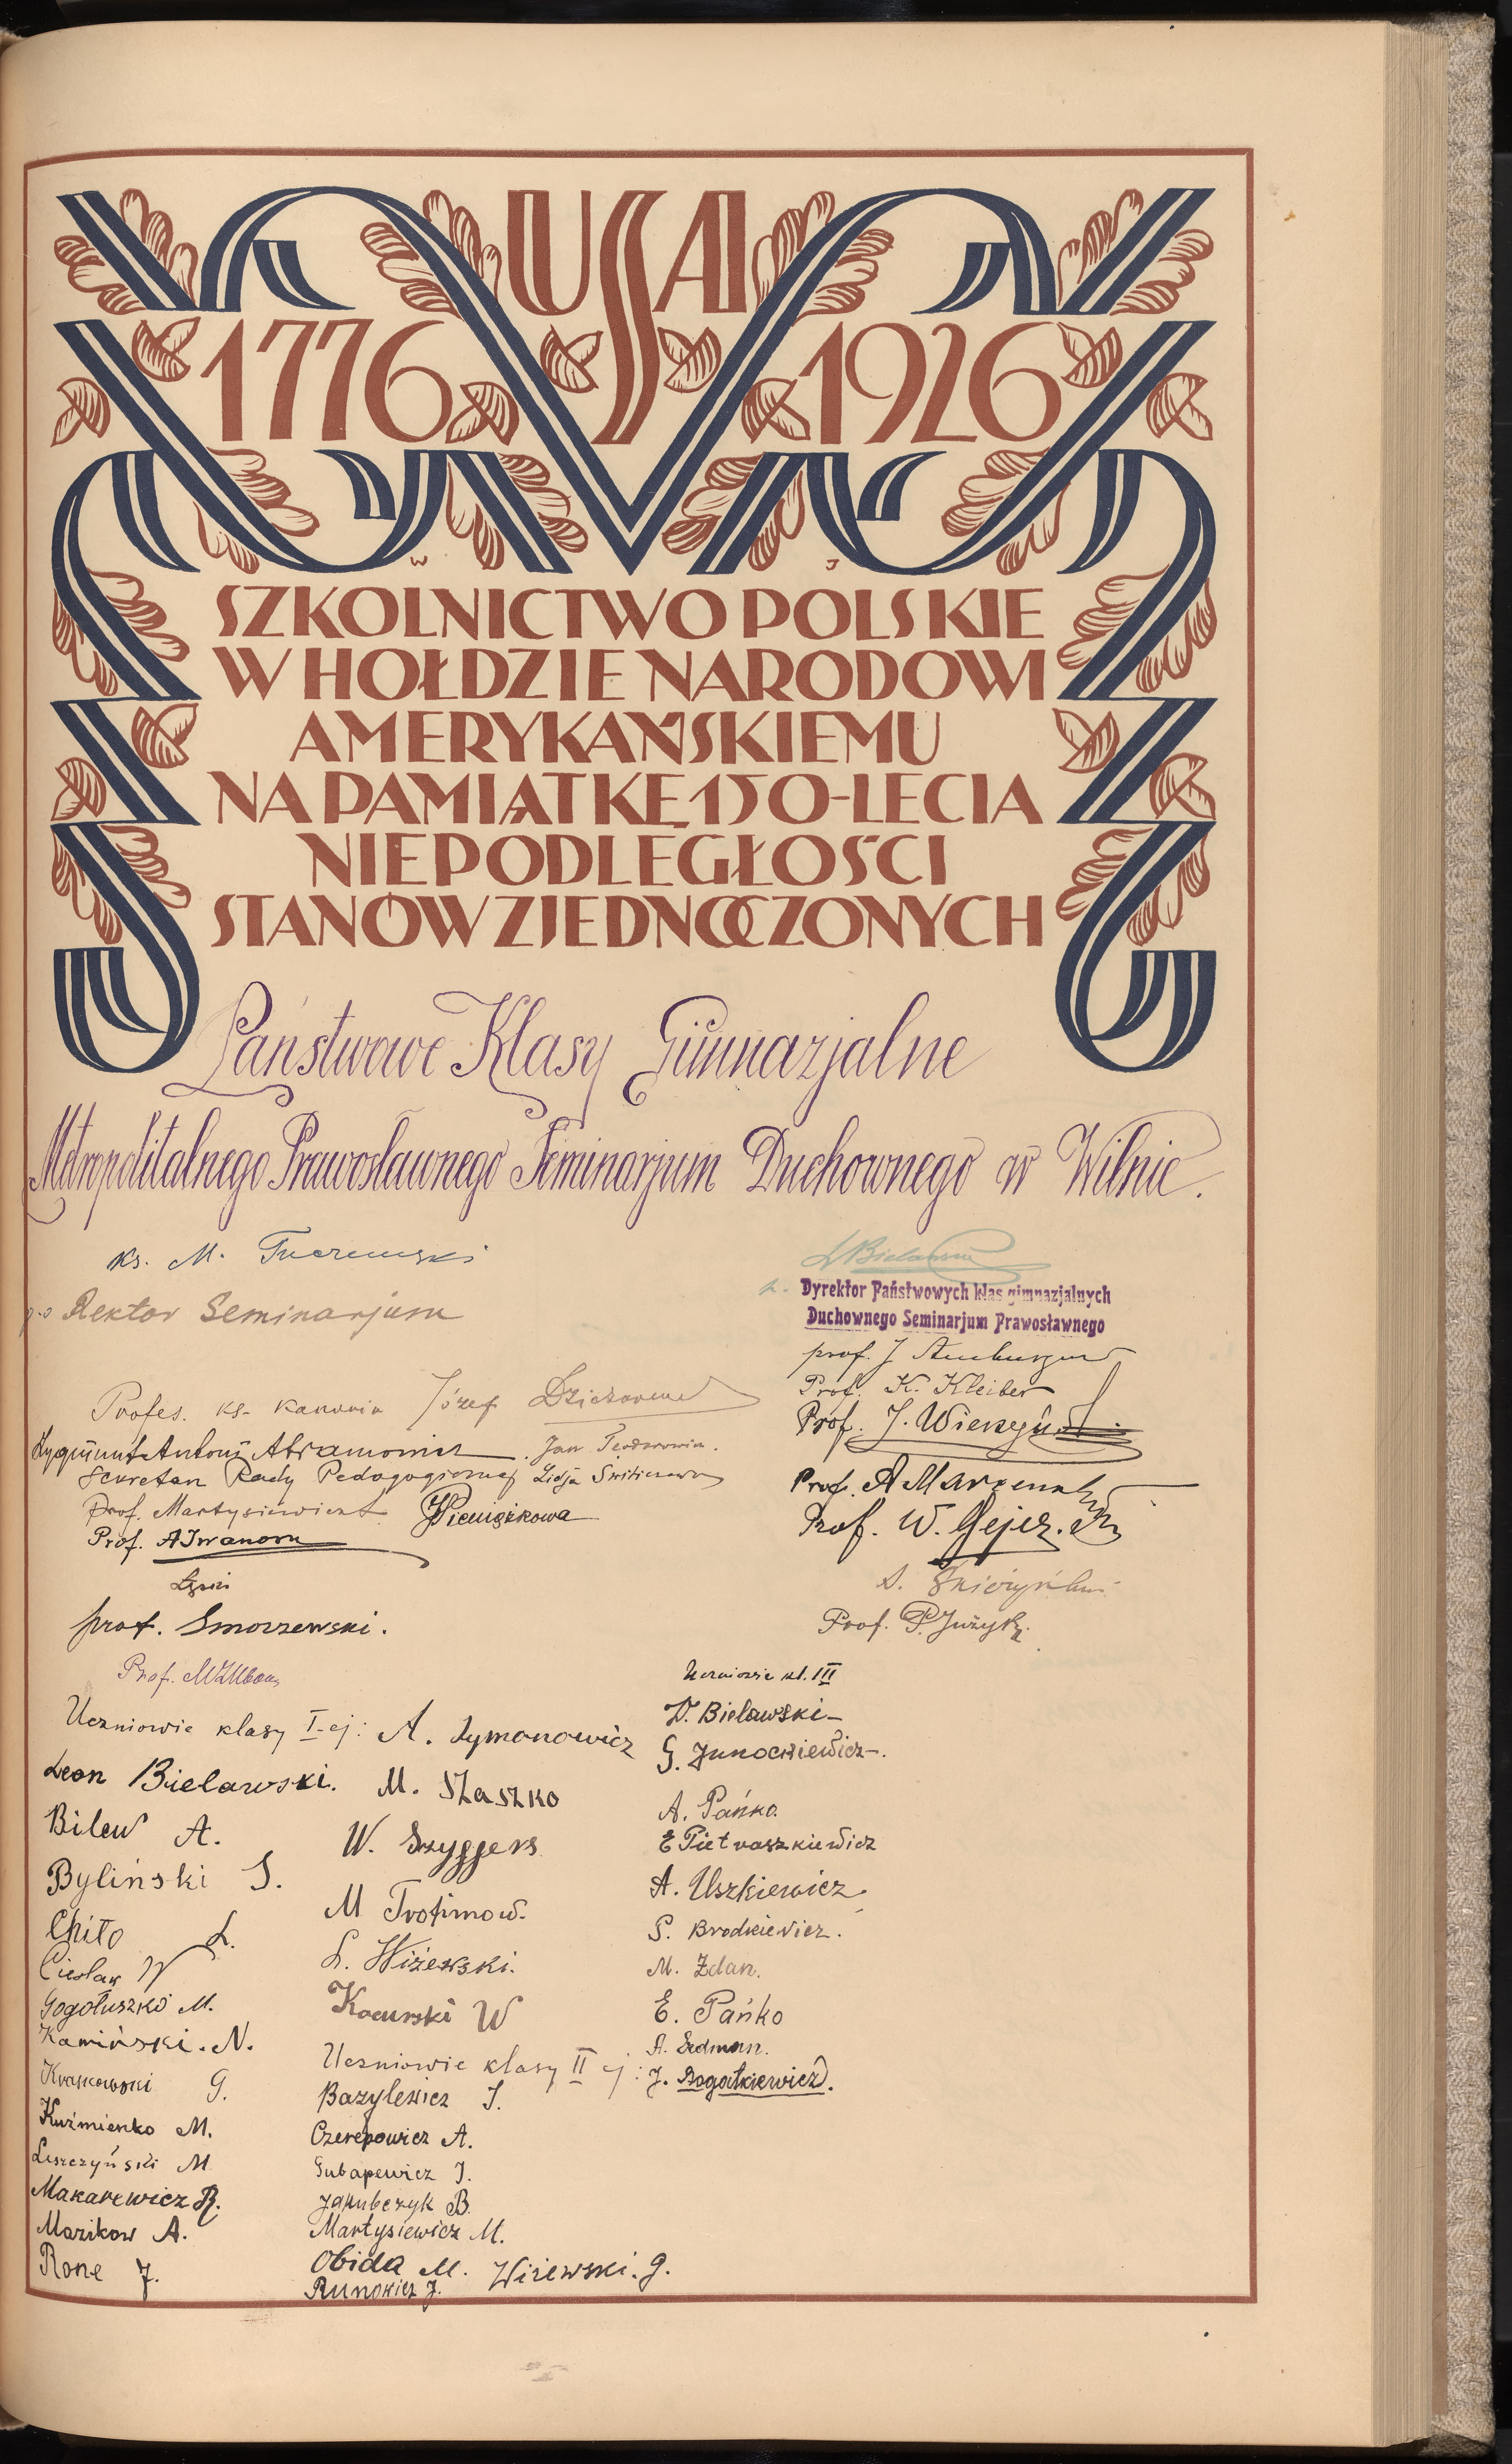 USA
1776 1926
W J
SZKOLNICTWO POLSKIE
W HOŁDZIE NARODOWI
AMERYKAŃSKIEMU
NA PAMIĄTKĘ 150-LECIA
NIEPODLEGŁOŚCI
STANÓW ZJEDNOCZONYCH
Państwowe Klasy Gimnazjalne
Metropolitalnego Prawosławnego Seminarjum Duchownego w Wilnie.
ks. M.
p.o Rektor Seminarjum
Profes. ks. Kanonik Józef
Zygmunt Antoni Abramowicz Jan Teodorowicz.
Sekretarz Rady Pedagogicznej Lidja
Prof. Martysiewicz Pieniążkowa
Prof. A Iwanow
prof. Smorzewski.
Prof.
L Bielawski
Dyrektor Państwowych klas gimnazjalnych
Duchownego Seminarjum Prawosławnego
prof. J
Prof. K. Kleiber
Prof. J.
Prof. A
Prof. W.
Prof. P.
Uczniowie klasy I-ej: A. Symonowicz
Leon Bielawski. M. Staszko
Bilew A. W. Szyggers
Byliński S. M Trofimow.
Chito L. L. Wiżewski.
Cieślak W Kocurski W
Gogołuszko M.
Kamiński. N.
Kraskowski G.
Kuźmienko M.
Leszczyński M
Makarewicz R.
Mazikow A.
Rone J.
Uczniowie klasy II ej:
Bazylewicz J.
Czerepowicz A.
Gubapewicz J.
Jakubczyk B.
Martysiewicz M.
Obida M. Wiżewski. G.
Runowicz J.
Uczniowie kl. III
W. Bielawski
G. Junocewiewicz.
A. Pańko.
E Pietraszkiewicz
A. Uszkiewicz.
S. Brodkiewicz.
M. Żdan.
E. Pańko
A. Sedman.
J. Bogatkiewicz.